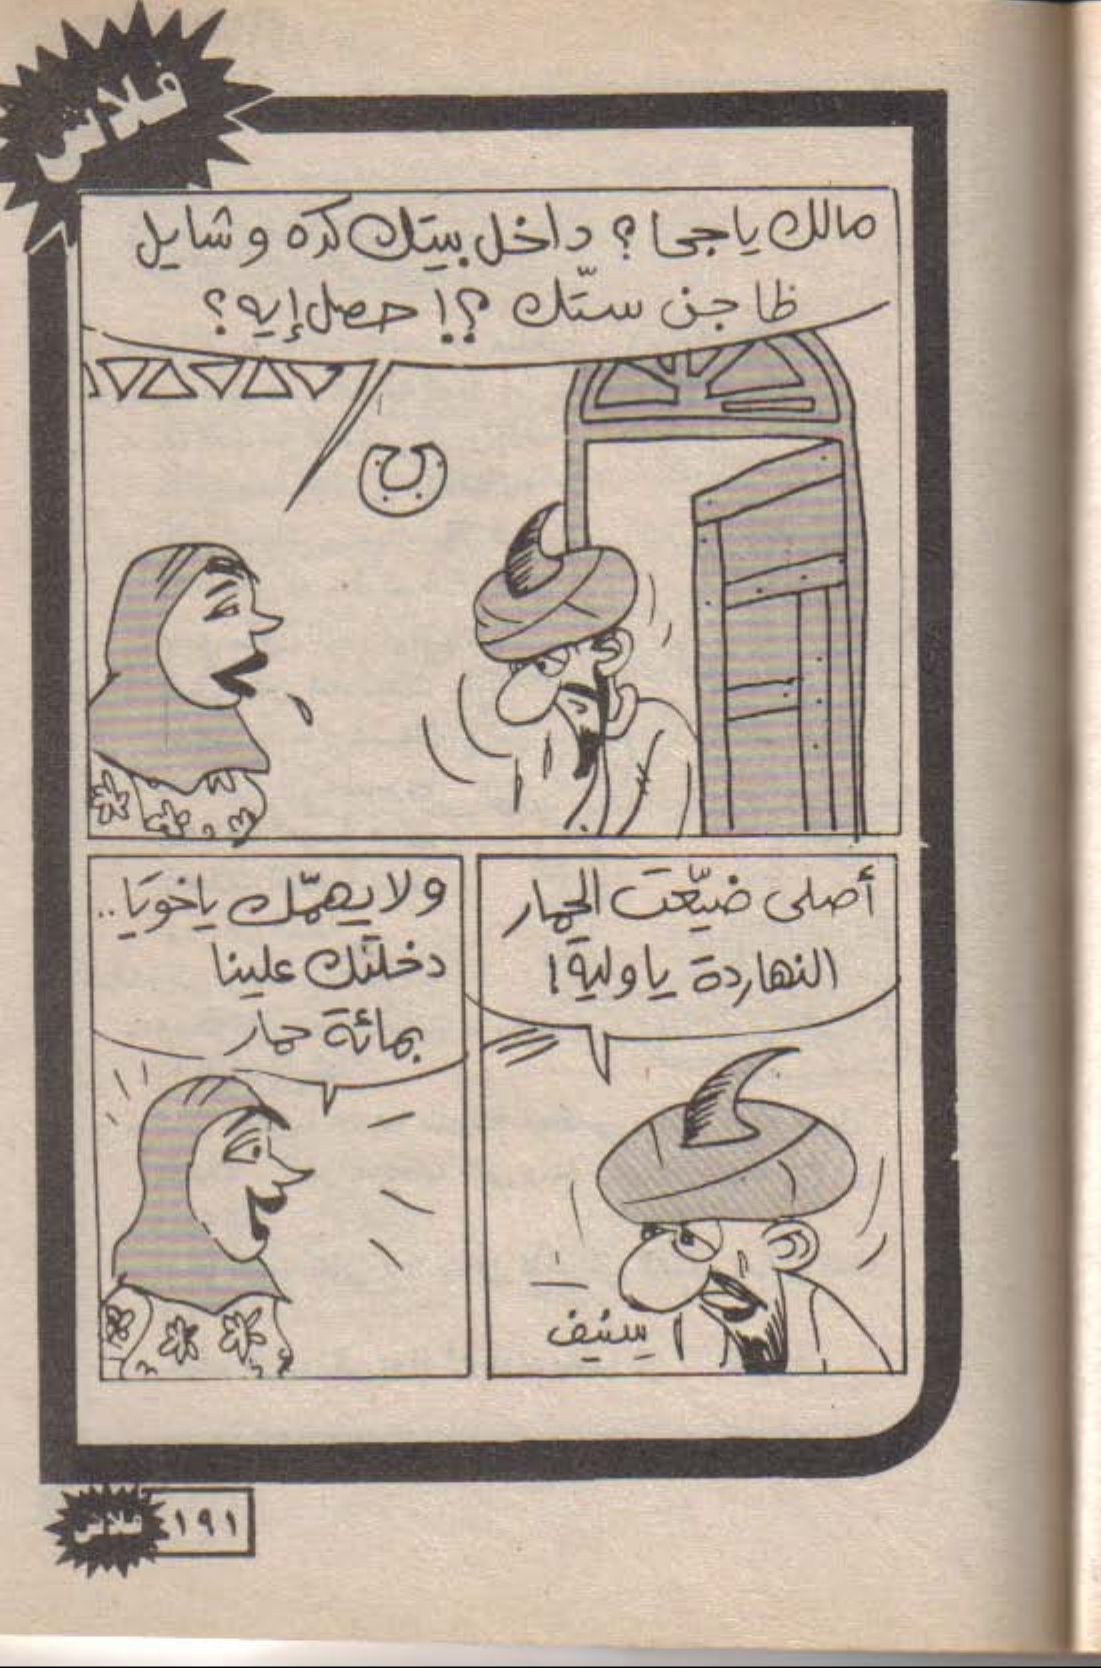 فلاش
مالك يا جحا ؟ داخل بيتك كده وشايل
ظاجن ستّك ؟! حصل إيه ؟
أصلى ضيّعت الحمار
النهاردة يا ولية !
سنيف
ولا يهمّك ياخويَا..
دخلتك علينا
بمائة حمار
١٩١
فلاش